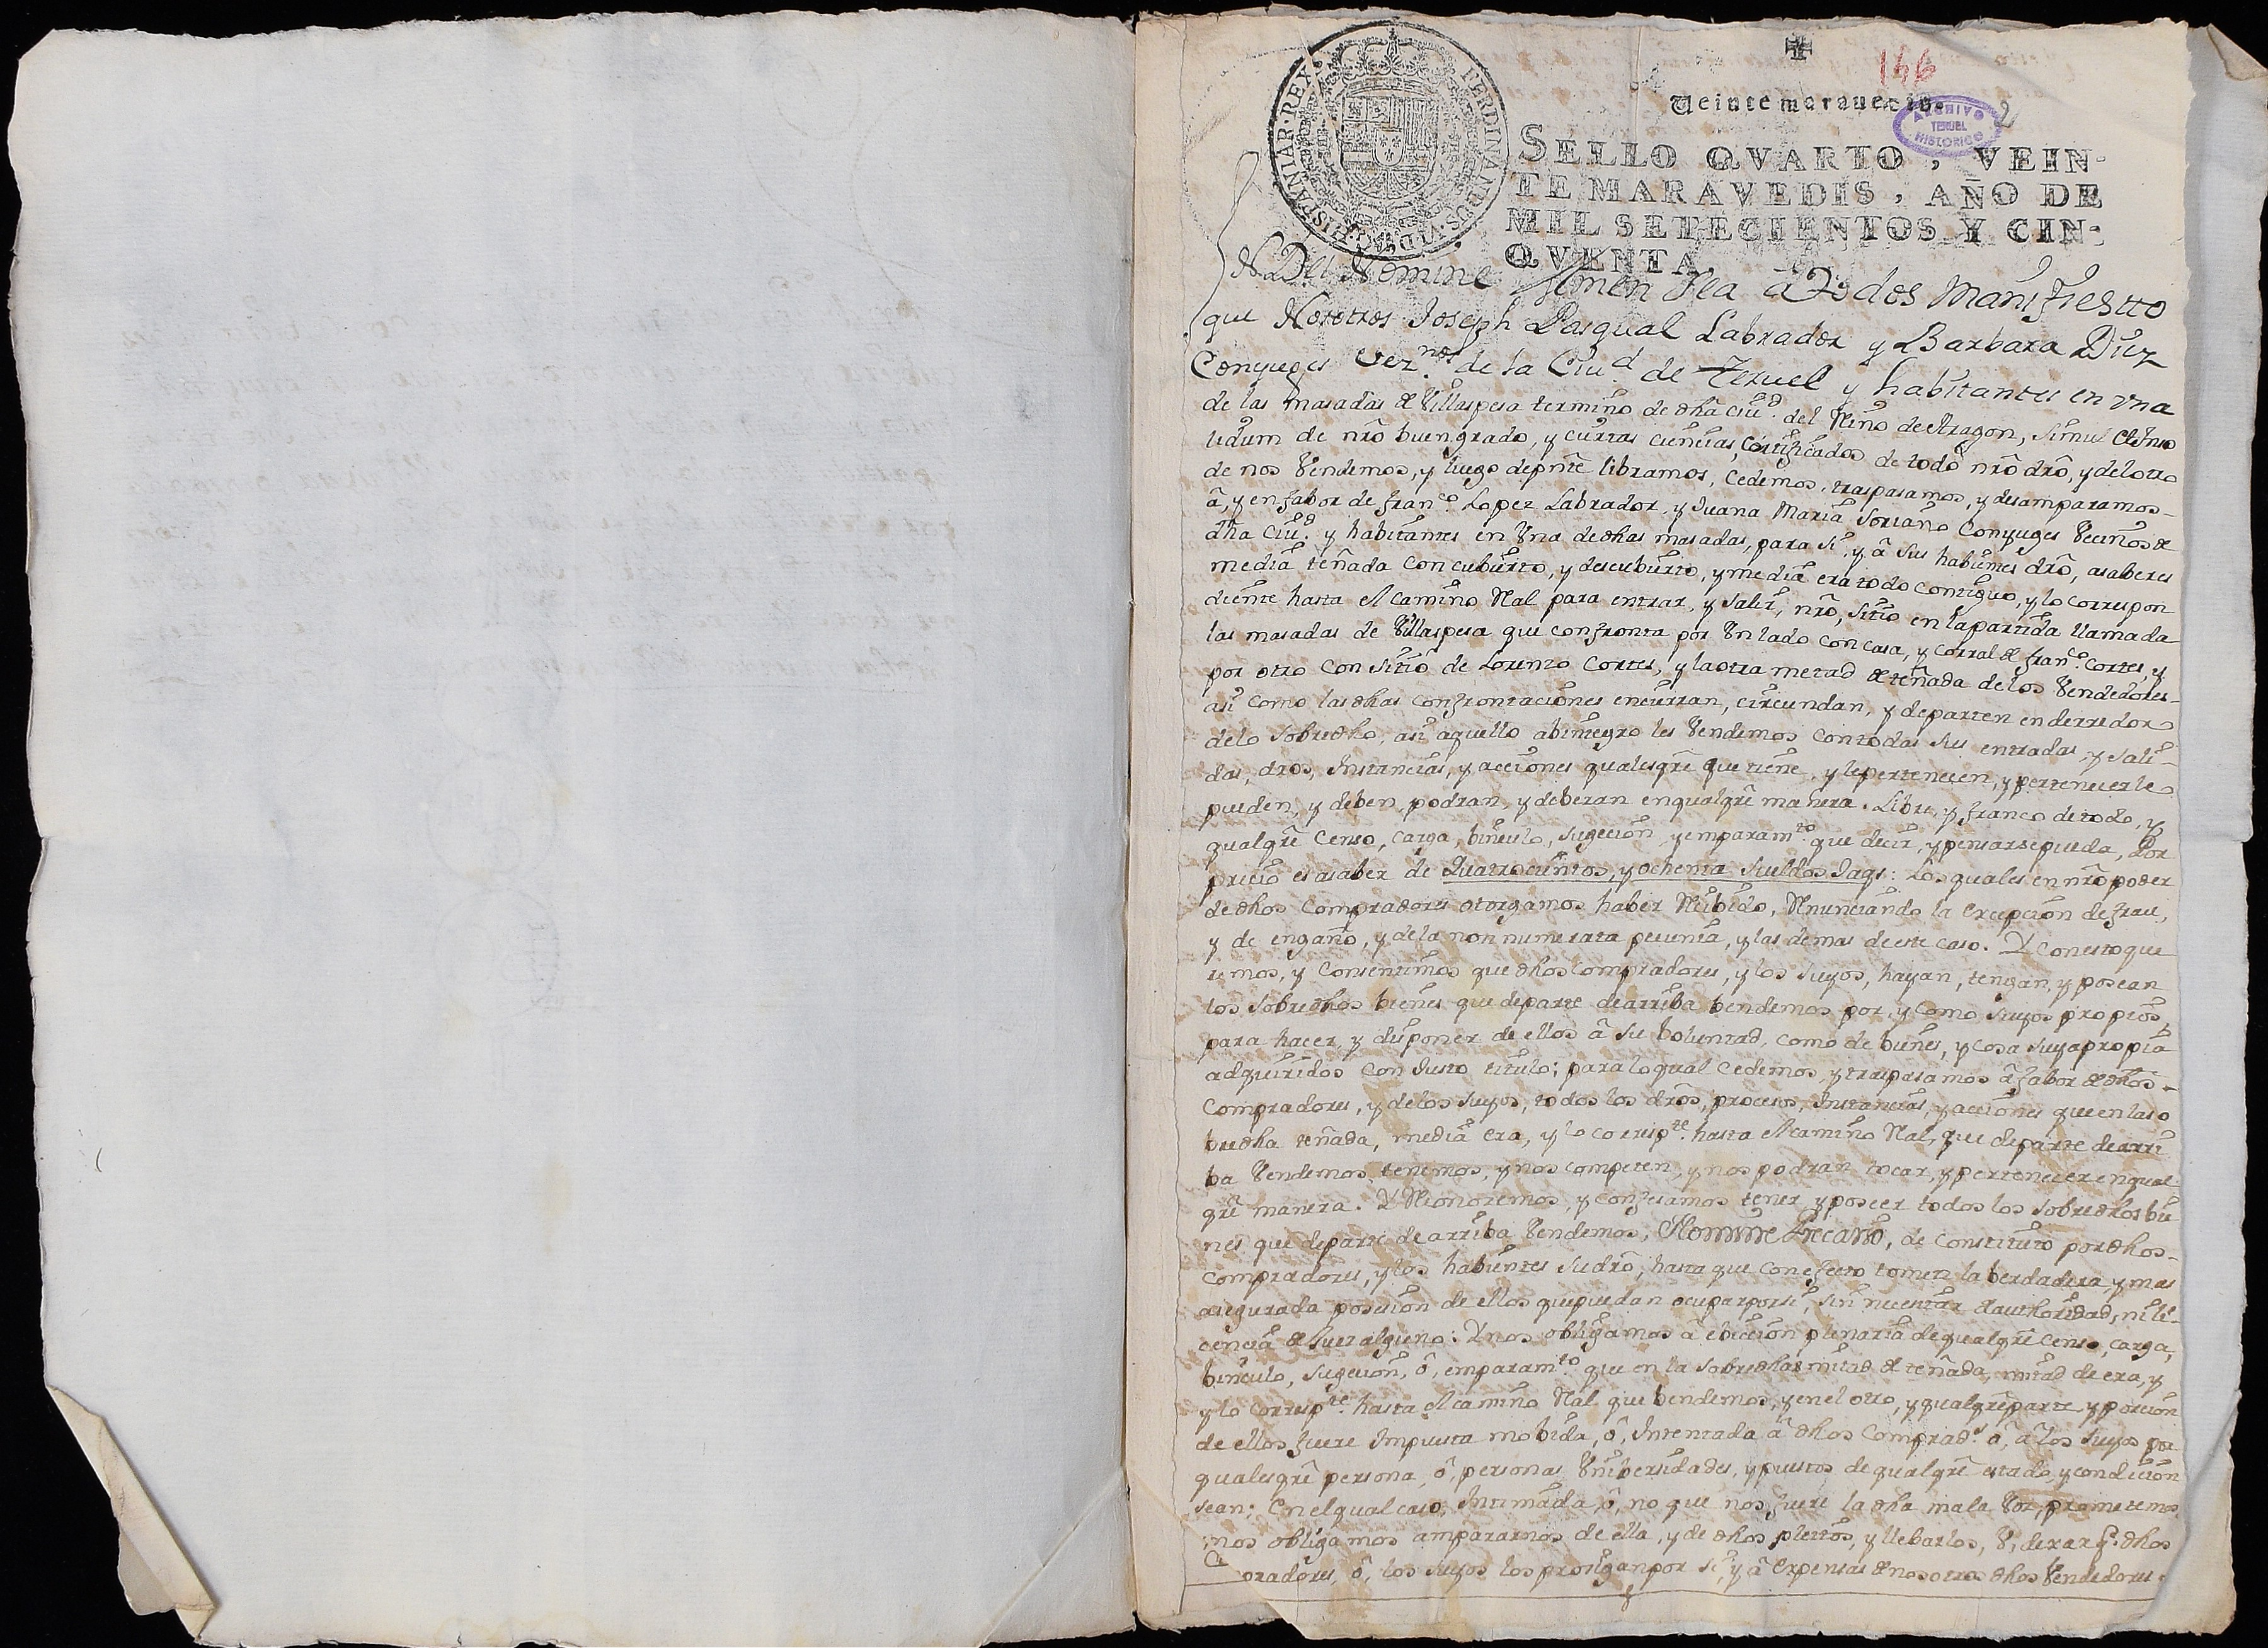 146
Veinte marauedis.
2
ARCHIVO
TERUEL
HISTORICO
FERDINANDUS·VI·D·G·HISPANIAR·REX·
SELLO QVARTO, VEIN-
TE MARAVEDIS, AÑO DE
MIL SETECIENTOS Y CIN-
QVENTA.
Dei Nomine Amen Sea à Todos Manifiestto
que Nosotros Joseph Pasqual Labrador y Barbara Diez
Conyuges Vez.nos de la Ciud de Teruel y habitantes en vna
de las masadas de Villaspesa termino de dha ciud. del Reino de Aragon, Simul et In so
lidum de nro buen grado, y ciertas ciencias, Certificados de todo nro dro, y del otro
de nos Vendemos, y luego de pnte libramos, Cedemos, traspasamos, y desamparamos
â, y en fabor de Fran.co Lopez Labrador, y Juana Maria Soriano Conyuges Vecinos de
dha Ciud. y habitantes en Vna de dhas masadas, para si, y â sus habientes dro, asaber es
media teñada con cubierto, y descubierto, y media era todo contiguo, y lo correspon
diente hasta el camino Rl para entrar, y Salir, nro, Sitio en la partida llamada
las masadas de Villaspesa que confronta por Vn lado con casa, y corral de Fran.co Cortes, y
por otro con Sitio de Lorenzo Cortes, y la otra metad de teñada de los Vendedores
asi como las dhas confrontaciones encierran, circundan, y departen en derredor
de lo Sobredho, asi aquello abintegro les Vendemos con todas sus entradas, y Sali-
das, dros, Instancias, y acciones qualesqre que tiene, y le pertenecen, y pertenecerle
pueden, y deben, podran, y deberan en qualqre manera. Libre, y franco de todo, y
qualqre Censo, carga, binculo, Sugecion, y emparam.to que decir, y pensar se pueda, Por
precio es asaber de Quatrocientos, y ochenta Sueldos Jaqs: Los quales en nro poder
de dhos Compradores otorgamos haber Recibido, Renunciando la Excepcion de frau,
y de engaño, y de la non numerata pecunia, y las demas de este caso. Y con esto que
remos, y Consentimos que dhos compradores, y los Suyos, hayan, tengan, y posean
los Sobredhos bienes que de parte de arriba bendemos por, y Como Suyos propios,
para hacer, y disponer de ellos â Su boluntad, como de bienes, y cosa Suya propia
adquiridos con Justo titulo; para lo qual Cedemos, y traspasamos â fabor de dhos
Compradores, y de los Suyos, todos los dros, procesos, Instancias, y acciones que en la so
bredha teñada, media era, y lo corresp.te hasta el camino Rl, que de parte de arri
ba Vendemos tenemos, y nos competen, y nos podran tocar, y pertenecer en qual
qre manera. Y Reconocemos, y confesamos tener, y poseer todos los sobredhos bie
nes que de parte de arriba Vendemos, Nomine Precario, de Constituto por dhos
compradores, y los habientes su dro, hasta que con efecto tomen la berdadera, y mas
asegurada posesion de ellos que puedan ocupar por si, sin necesitar de authoridad, ni li-
cencia de Juez alguno: Y nos obligamos â ebiccion plenaria de qualqre censo, carga,
binculo, Sugecion, ô, emparam.to que en la sobredha mitad de teñada, mitad de era, y
y lo corresp.te hasta el camino Rl que bendemos, y en el otro, y qualqre parte, y porcion
de ellos fuere Impuesta mobida, ô, Intentada â dhos Comprad.s ô, â los Suyos por
qualesqre persona, ô, personas Vnibersidades, y puestos de qualqre estado, y condicion
sean; En el qual caso, Intimada, ô, no que nos fuere la dha mala Voz, prometemos
nos obligamos ampararnos de ella, y de dhos pleitos, y llebarlos, V, dexar q. dhos
pradores, ô, los suyos los prosigan por si, y â Expensas de nosotros dhos Vendedores.